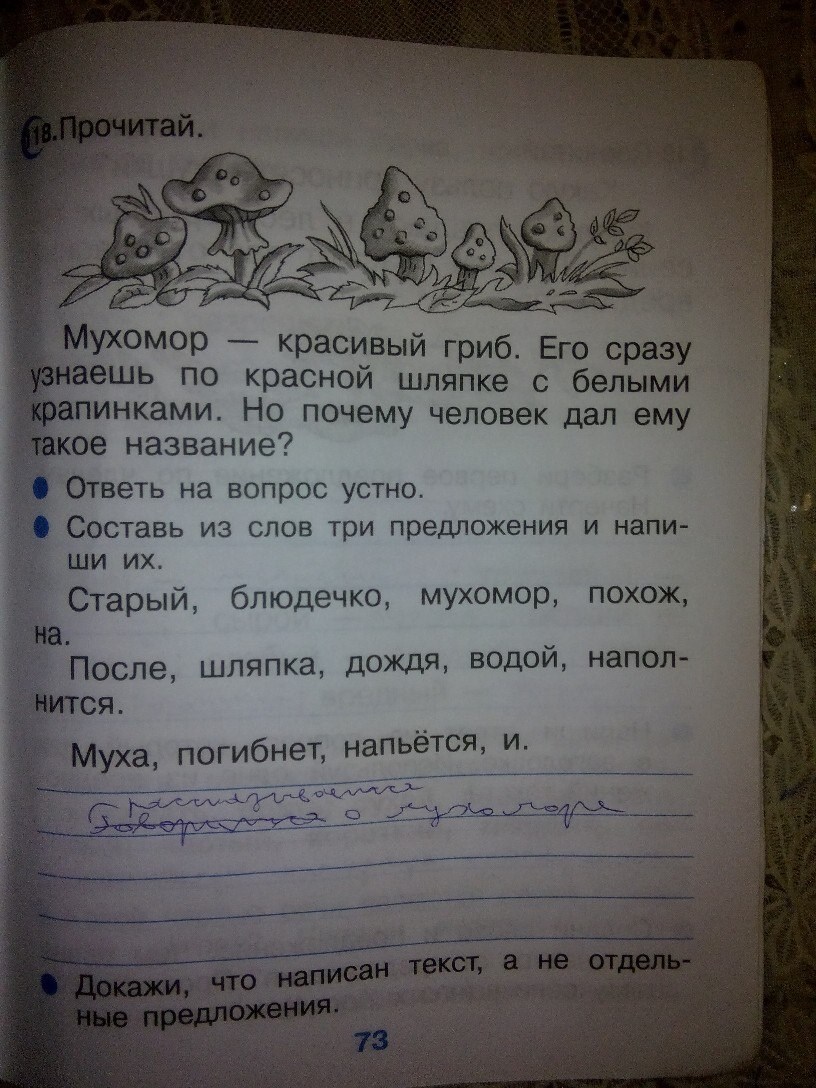 118. Прочитай.
Мухомор — красивый гриб. Его сразу
узнаешь по красной шляпке с белыми
крапинками. Но почему человек дал ему
такое название?
Ответь на вопрос устно.
Составь из слов три предложения и напи-
ши их.
Старый, блюдечко, мухомор, похож,
на.
После, шляпка, дождя, водой, напол-
нится.
Муха, погибнет, напьётся, и.
рассказывается
Говорится о мухоморе
Докажи, что написан текст, а не отдель-
ные предложения.
73